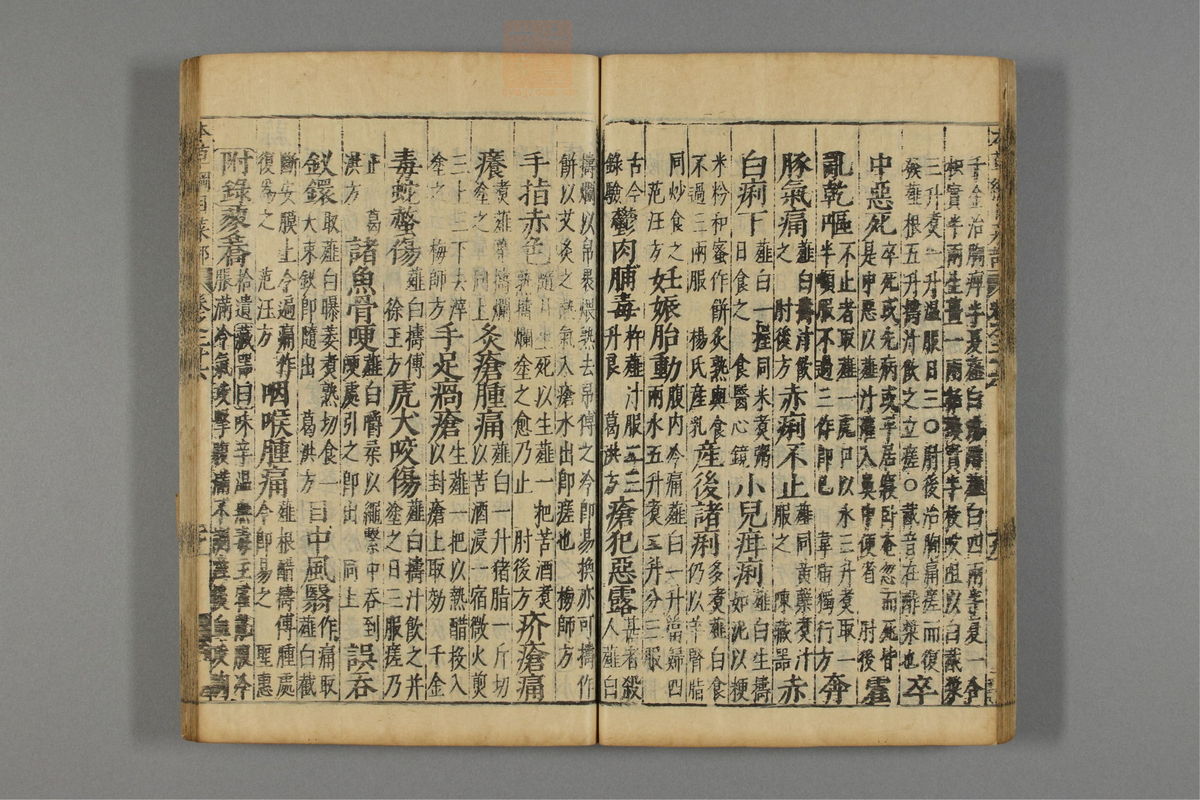 千金治胸痹半夏薤白湯用薤白四兩半夏一合
枳實半兩生薑一兩栝樓實半枚㕮咀以白截漿
三升煮一升溫服日三〇肘後治胸痛瘥而復
發薤根五升擣汁飲之立瘥〇截音在酢漿也
卒
中惡死
卒死或先病或平居寢臥奄忽而死皆
是中惡以薤汁灌入鼻中便省 肘後
霍
亂乾嘔
不止者取薤一虎口以水三升煮取一
半頓服不過三作即已 韋宙獨行方
奔
豚氣痛
薤白擣汁飲
之 肘後方
赤痢不止
薤同黃蘗煮汁
服之 陳藏器
赤
白痢下
薤白一握同米煮粥
日食之 食醫心鏡
小兒疳痢
薤白生擣
如泥以粳
米粉和蜜作餅炙熟與食
不過三兩服 楊氏産乳
産後諸痢
多煮薤白食
仍以羊腎脂
同炒食之
范汪方
妊娠胎動
腹內冷痛薤白一升當歸四
兩水五升煮二升分三服
古今
錄驗
鬱肉脯毒
杵薤汁服二三
升良 葛洪方
瘡犯惡露
甚者殺
人薤白
擣爛以帛裹煨熱去帛傅之冷即易換亦可擣作
餅以艾灸之熱氣入瘡水出即瘥也 梅師方
手指赤色
隨月生死以生薤一把苦酒煮
熟擣爛塗之愈乃止 肘後方
疥瘡痛
癢
煮薤葉擣爛
塗之 同上
灸瘡腫痛
薤白一升猪脂一斤切
以苦酒浸一宿微火煎
三上三下去滓
塗之 梅師方
手足瘑瘡
生薤一把以熱醋投入
以封瘡上取效 千金
毒蛇螫傷
薤白擣傅
徐王方
虎犬咬傷
薤白擣汁飲之并
塗之日三服瘥乃
止 葛
洪方
諸魚骨哽
薤白嚼柔以繩繫中吞到
哽處引之即出 同上
誤吞
釵鐶
取薤白曝萎煮熟切食一
大束釵即隨出 葛洪方
目中風翳
作痛取
薤白截
斷安膜上令遍痛作
復爲之 范汪方
咽喉腫痛
薤根醋擣傅腫處
冷即易之 聖惠
附錄蓼蕎
拾遺藏器曰味辛溫無毒主霍亂腹冷
脹滿冷氣攻擊腹滿不調産後血攻胸
本草綱目菜部 卷之二十六